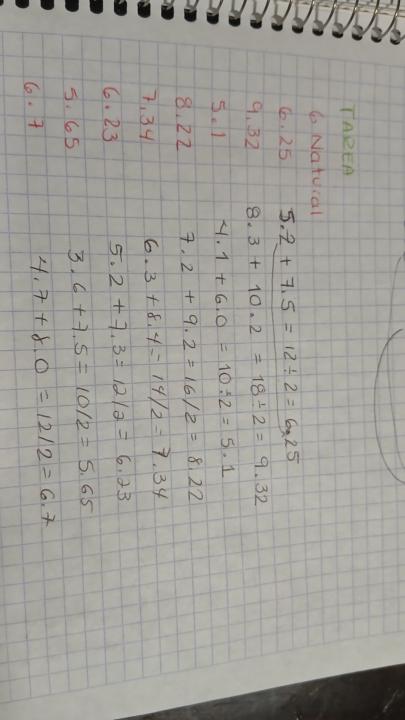 TAREA
6 Natural
6.25 5.2 + 7.5 = 12÷2 = 6.25
9.32 8.3 + 10.2 = 18÷2 = 9.32
5.1 4.1 + 6.0 = 10÷2 = 5.1
8.22 7.2 + 9.2 = 16/2 = 8.22
7.34 6.3 + 8.4 = 14/2 = 7.34
6.23 5.2 + 7.3 = 12/2 = 6.23
5.65 3.6 + 7.5 = 10/2 = 5.65
6.7 4.7 + 8.0 = 12/2 = 6.7